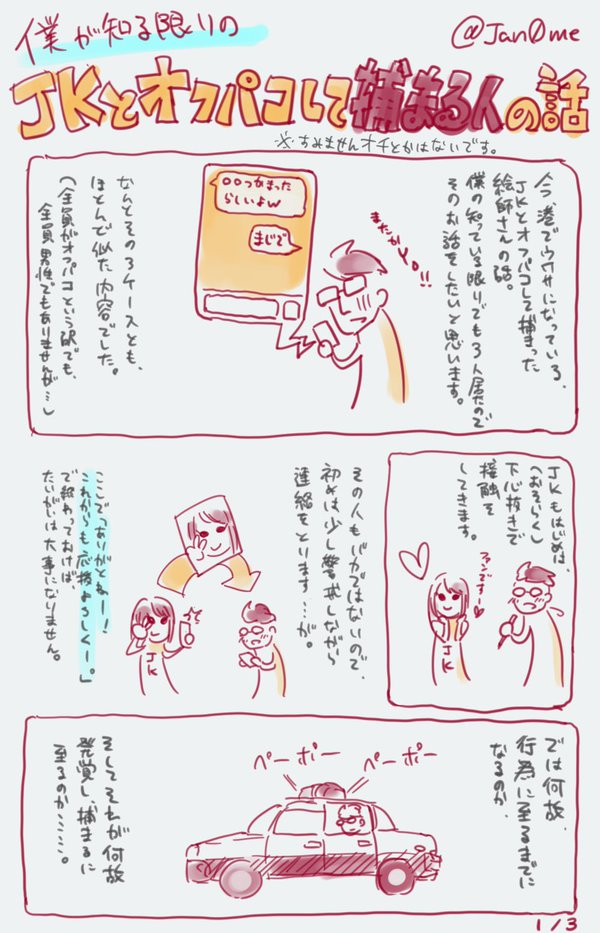 僕が知る限りの
@Jan0me
JKとオフパコして捕まる人の話
※すみませんオチとかはないです。
今巷でウワサになっている、
JKとオフパコして捕まった
絵師さんの話。
僕の知っている限りでも3人居たので
そのお話をしたいと思います。
まだかよ!!
〇〇つかまった
らしいよw
まじで
なんとその3ケースとも、
ほとんど似た内容でした。
(全員がオフパコという訳でも、
全員男性でもありませんが…)
JKもはじめは、
(おそらく)
下心抜きで
接触を
してきます。
ファンですー
JK
その人もバカではないので、
初めは少し警戒しながら
連絡をとります…が。
JK
ここで「ありがとねー!
これからも応援よろしくー。」
で終わっておけば、
たいがいは大事になりません。
では何故、
行為に至るまでに
なるのか、
ペーポー
ペーポー
そしてそれが何故
発覚し、捕まるに
至るのか……。
1/3